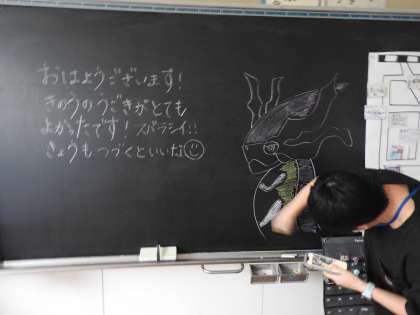 おはようございます!
きのうのうごきがとても
よかったです!スバラシイ!!
きょうもつづくといいな